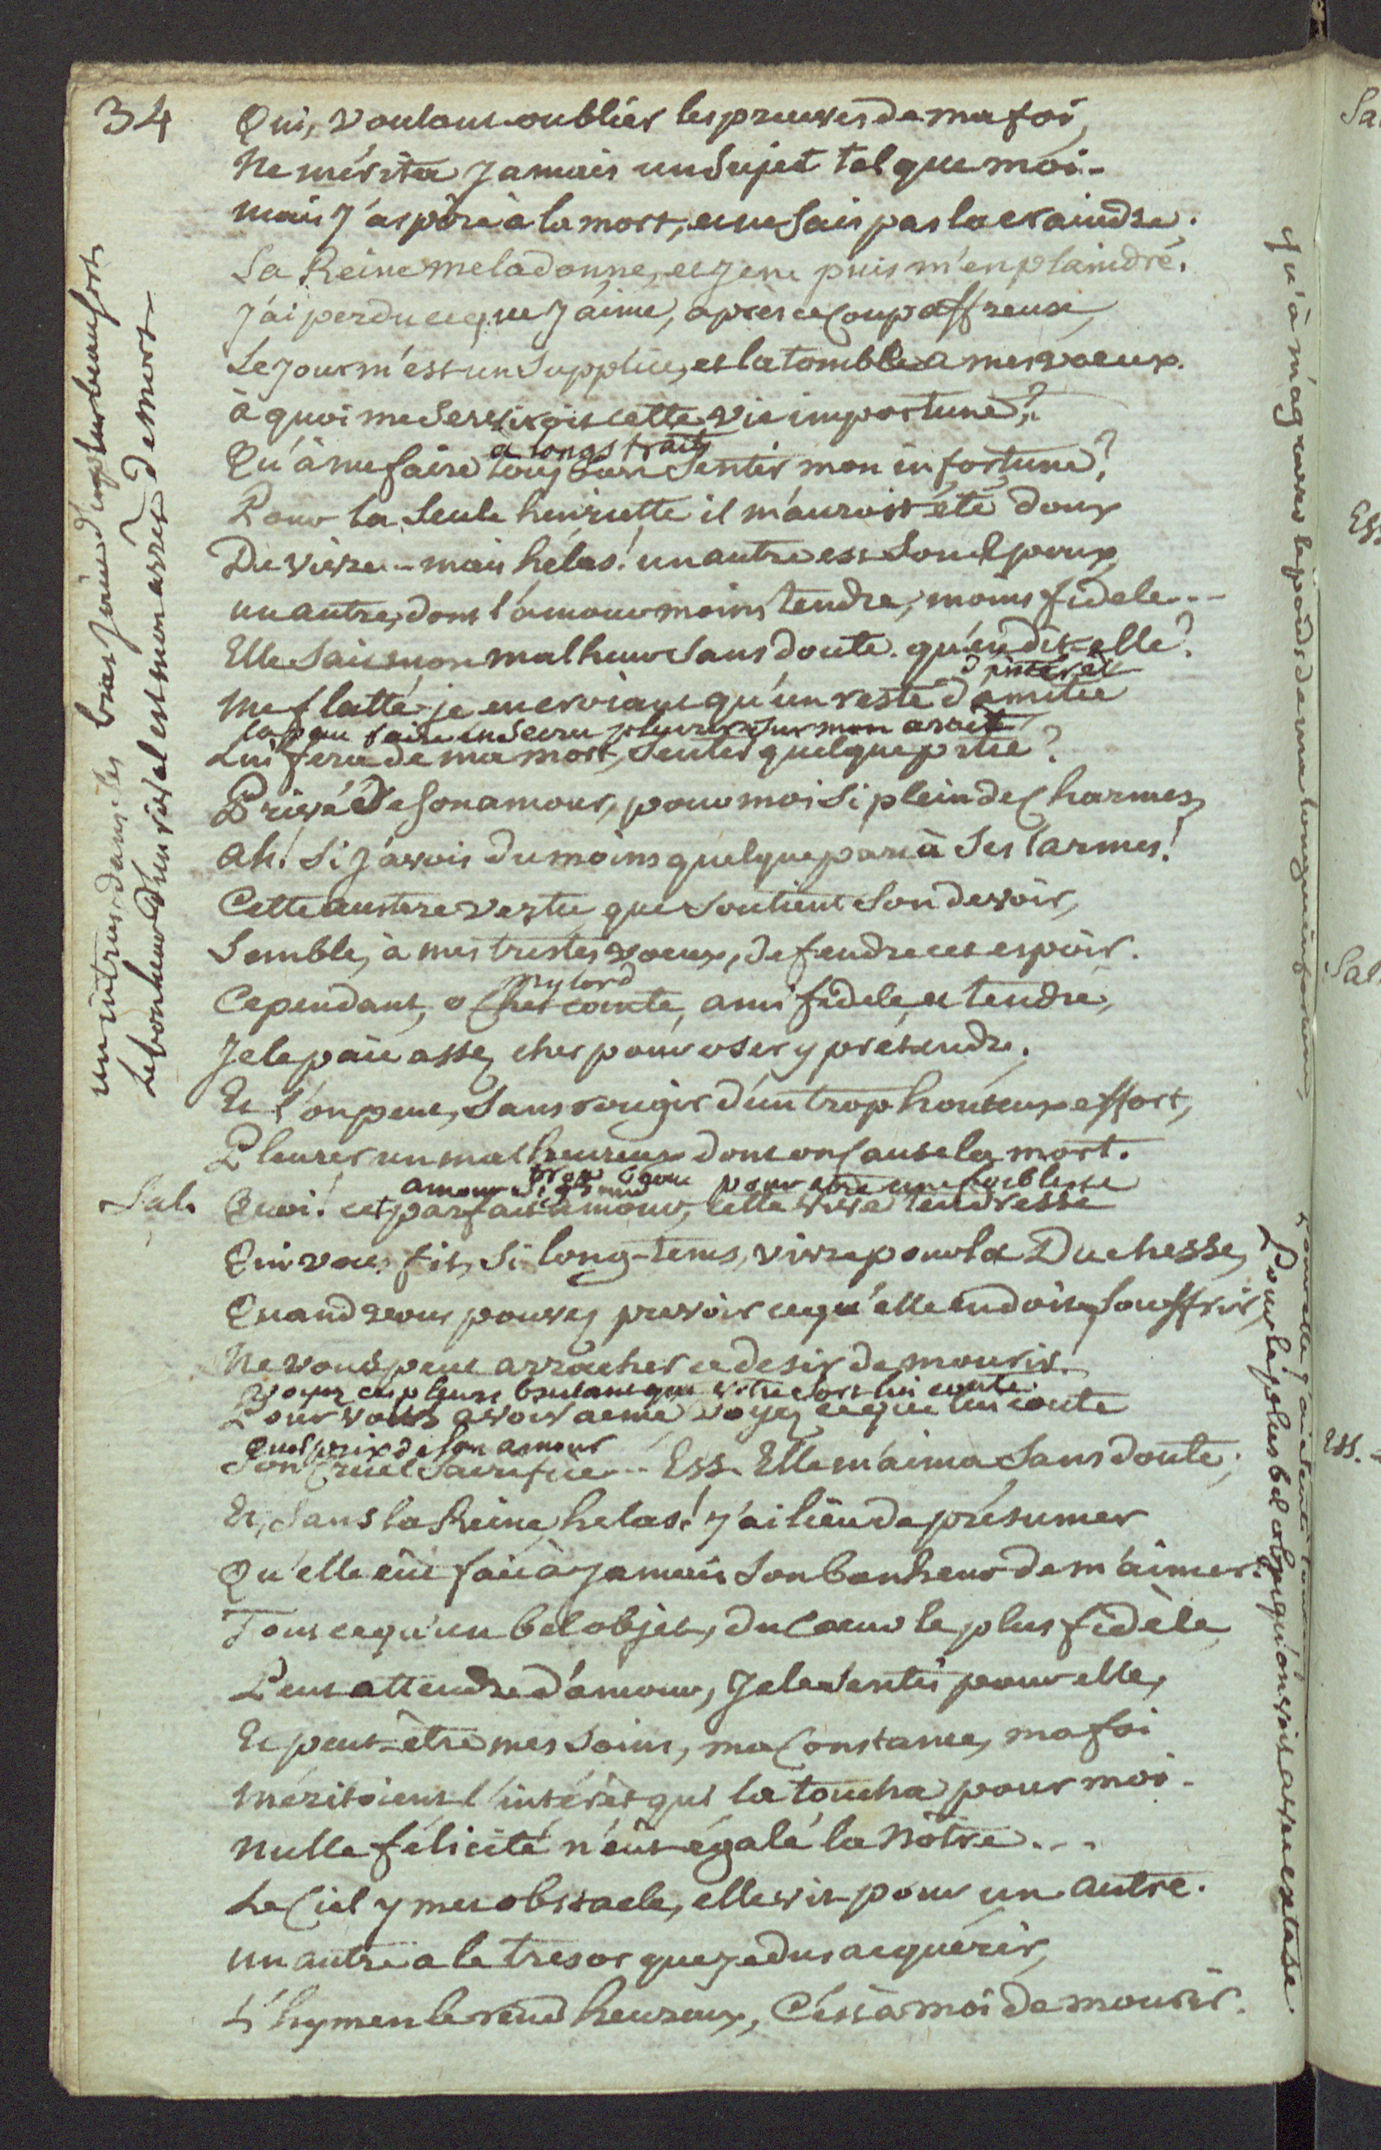 34
Qui, voulant oublier les preuves de ma foi,
Ne mérita jamais un Sujet tel que moi.
mais j'aspire à la mort, et ne Sais pas la craindre.
La Reine me la donne, et je ne puis m'en plaindre.
J'ai perdu ce que j'aime, après ce Coup affreux,
Le jour m'est un Supplice, et la tombe a mes voeux.
à quoi me Serviroit cette vie importune?
a longs traits
Qu'à me faire toujours Sentir mon infortune?
Pour la Seule henriette il m'auroit été doux
De vivre - mais hélas! un autre est Son Epoux,
un autre, dont l'amour moins tendre, moins fidele...
Elle Sait mon malheur Sans doute. qu'en dit-elle?
d'interêt
me flatté-je en croiant qu'un reste d'amitié
pleurer sur mon
Lui fera de ma mort, Sentir quelque pitié?
Privé de Son amour, pour moi Si plein de Charmes,
Ah! Si j'avois du moins quelque part à Ses larmes!
Cette austere vertu que Soutient Son devoir,
Semble, à mes tristes voeux, defendre cet espoir.
Mylord
Cependant, o Cher comte, ami fidele et tendre,
Je le paie assez cher pour oser y prétendre.
Et l'on peut, Sans rougir d'un trop honteux effort,
Pleurer un malheureux dont on Cause la mort.
amour pour une foiblesse
Sal. Quoi! cet parfait amour, cette vive tendresse
Qui vous fit, Si long-tems, vivre pour la Duchesse,
Quand vous pouvez prevoir ce qu'elle en doit Souffrir,
Ne vous peut arracher ce desir de mourir.
Voyez ces pleurs que votre Sort lui coute.
Pour vous avoir aimé voyez ce que lui coute
Quel prix de Son amour
Son Cruel Sacrifice.. Ess. Elle m'aima Sans doute;
Et, Sans la Reine, helas! j'ai lieu de présumer
Qu'elle eût fait à jamais Son bonheur de m'aimer.
Tout ce qu'un bel objet, du Coeur le plus fidèle
Peut attendre d'amour, Je le Sentis pour elle,
Et peut-être mes Soins, ma Constance, ma foi
Méritoient l'intérêt qui la toucha pour moi.
Nulle félicité n'eût égalé la Nôtre...
Le Ciel y met obstacle, elle vit pour un autre.
un autre a le tresor que je dus acquérir,
L'hymen le rend heureux, C'est à moi de mourir.
un intrus, dans les bras
Le bonheur d'un rival est mon arrêt de mort -
Qu'à m'agraver le poids de ma longue infortune,
Pour le plus bel objet qu'on vit avec extase
Sal
Ess
Sal.
Ess.